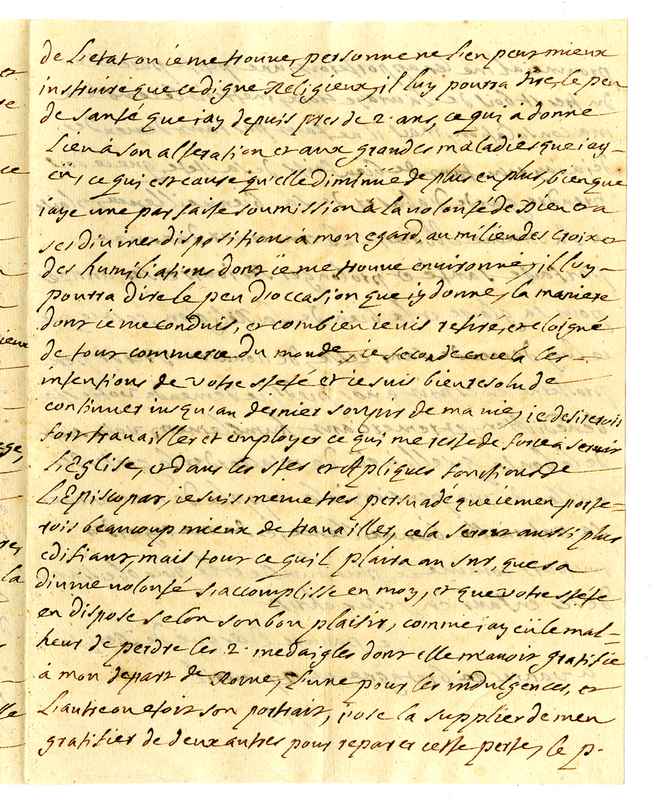 de L'etat ou ie me trouve, personne ne L'en peut mieux
instruire que ce digne Religieux, il luy pourra dire, le peu
de santé que iay depuis pres de 2. ans, ce qui à donné
Lieu à son alteration et aux grandes maladies que iay-
eü, ce qui est cause qu'elle diminüe de plus en plus, bien que
iaye une parfaite soumission à la volonté de Dieu et a
ses divines dispositions à mon egard, au milieu des Croix et
des humiliations dont ïe me trouve environné, il luy-
pourra dire le peu d'occasion que iy donne, la maniere
dont ie me conduis, et combien ie vis retiré, et eloigné
de tour commerce du monde, ie seconde en cela les-
intentions de votre steté et ie suis bien resolu de
continuer iusqu'au dernier soupir de ma vie, ie desirerois
fort travailler et employer ce qui me reste de force à servir
L'Eglise, et dans les stes et Apliques fonctions de
L'Episcopat, ie suis même tres persuadé que ie men porte=
rois beaucoup mieux de travailler, cela seroit aussi plus
edifiant, mais tout ce qu'il plaira au Snr, que sa
divine volonté s'accomplisse en moy, et que votre steté
en dispose selon son bon plaisir, comme iay eü le mal=
heur de perdre les 2. medaigles dont elle m'avoit gratifié
à mon depart de Rome, L'une pour les indulgences, et
L'autre ou etoit son portrait, i'ose la supplier de men
gratifier de deux autres pour reparer cette perte, le p.